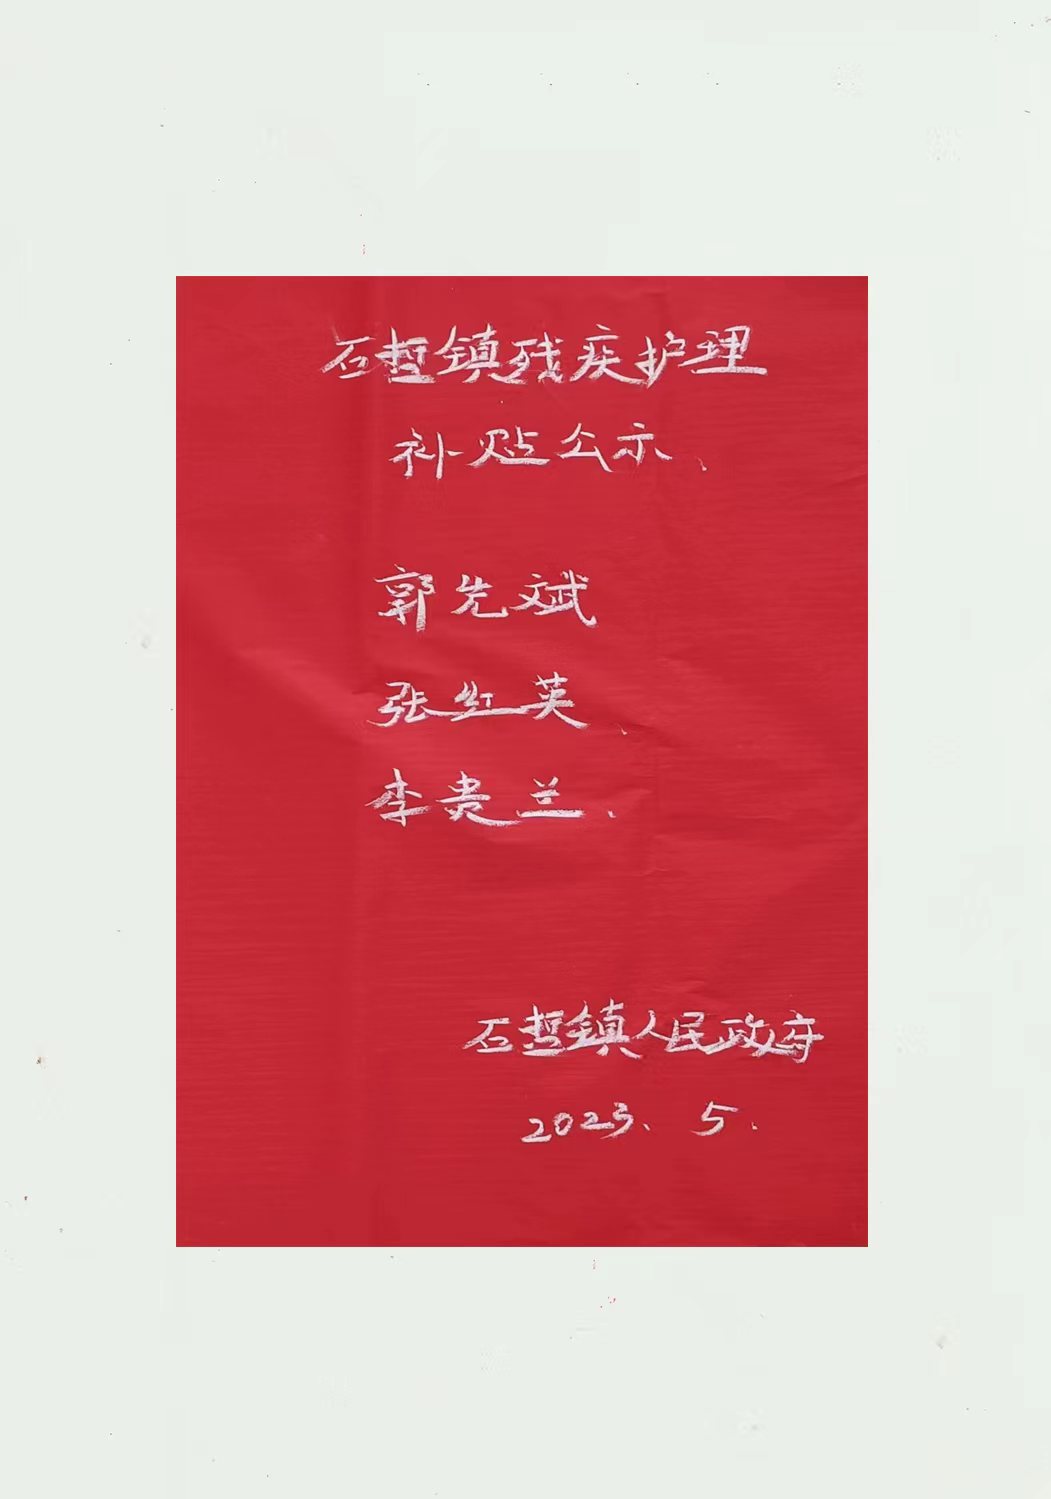 石哲镇残疾护理
补贴公示、
郭先斌
张红英、
李贵兰、
石哲镇人民政府
2023、5、